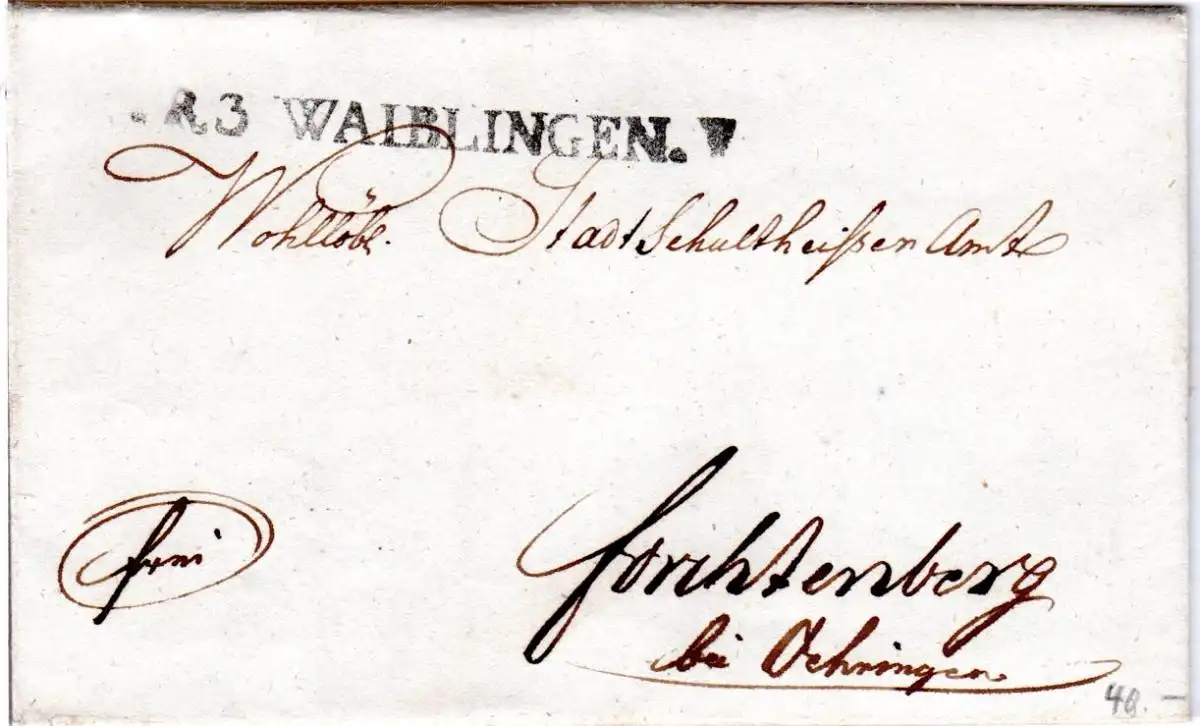 R.3 WAIBLINGEN.
Wohllöbl. Stadtschultheißen Amt
frei
Forchtenberg
bei Oehringen
40.-